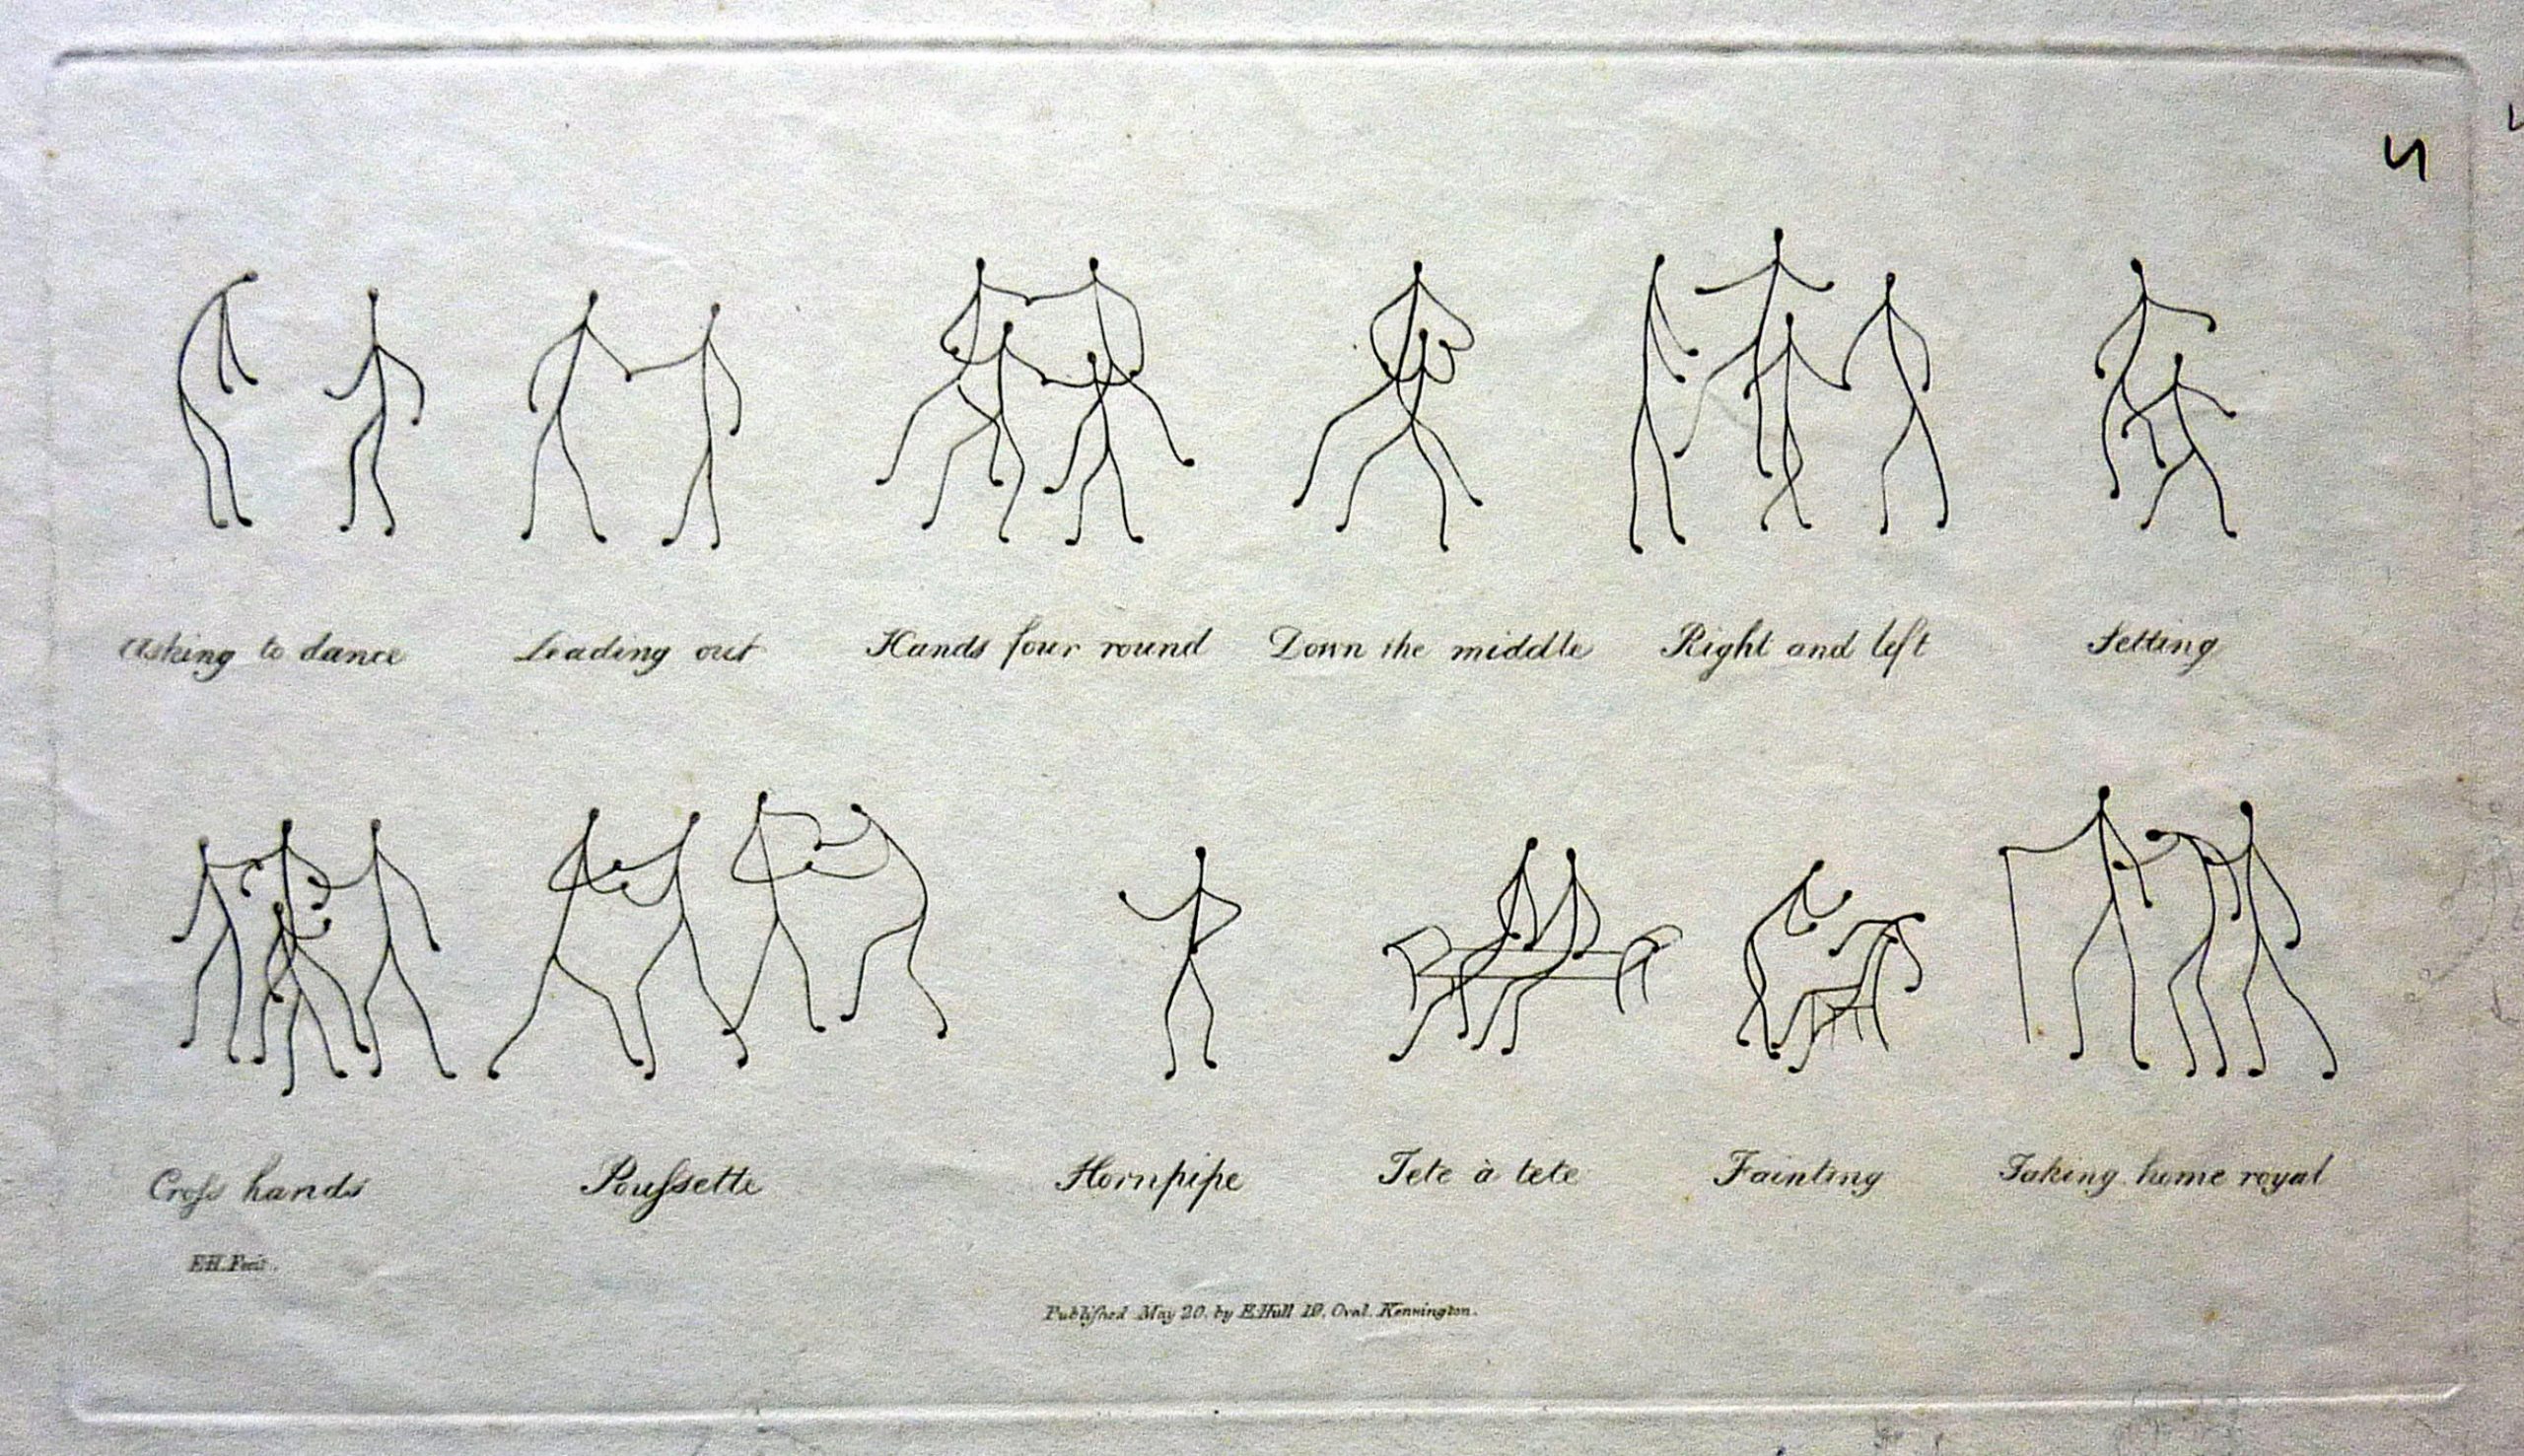 Asking to dance Leading out Hands four round Down the middle Right and left Setting
Croſs hands Pouſsette Hornpipe Tete à tete Fainting Taking home royal
E.H. Fecit.
Publiſhed May 20, by E.Hull 19, Oval, Kennington.